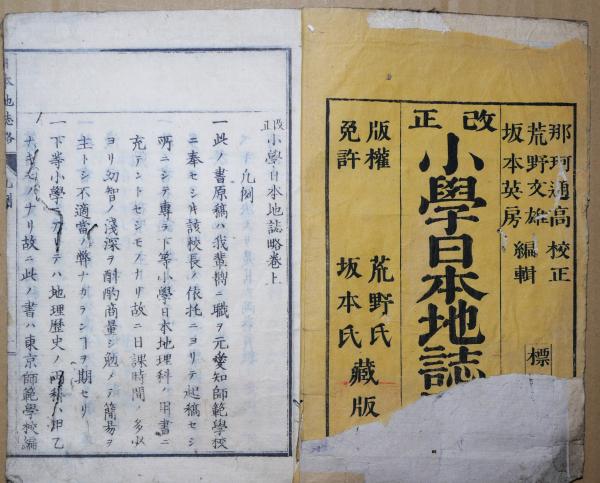 那珂通高校正
荒野文雄
坂本英房
編輯
標
改正
小學日本地誌
版權
免許
荒野氏
坂本氏
藏版
改正
小學日本地誌略卷上
凡例
一此ノ書原稿ハ我輩嚮ニ職ヲ元愛知師範學校
ニ奉セシ時該校長ノ依托ニヨリテ起稿セシ
所ニシテ專ラ下等小學日本地理科ノ用書ニ
充テントセシモノナリ故ニ日課時間ノ多少
ヨリ幼智ノ淺深ヲ酙酌商量シ勉メテ簡易ヲ
主トシ不適當ノ弊ナカランヿヲ期セリ
一下等小學ニ テハ地理歷史ノ兩科ハ
ノナリ故ニ此ノ書ハ東京師範學校編
日本地誌略
凡例